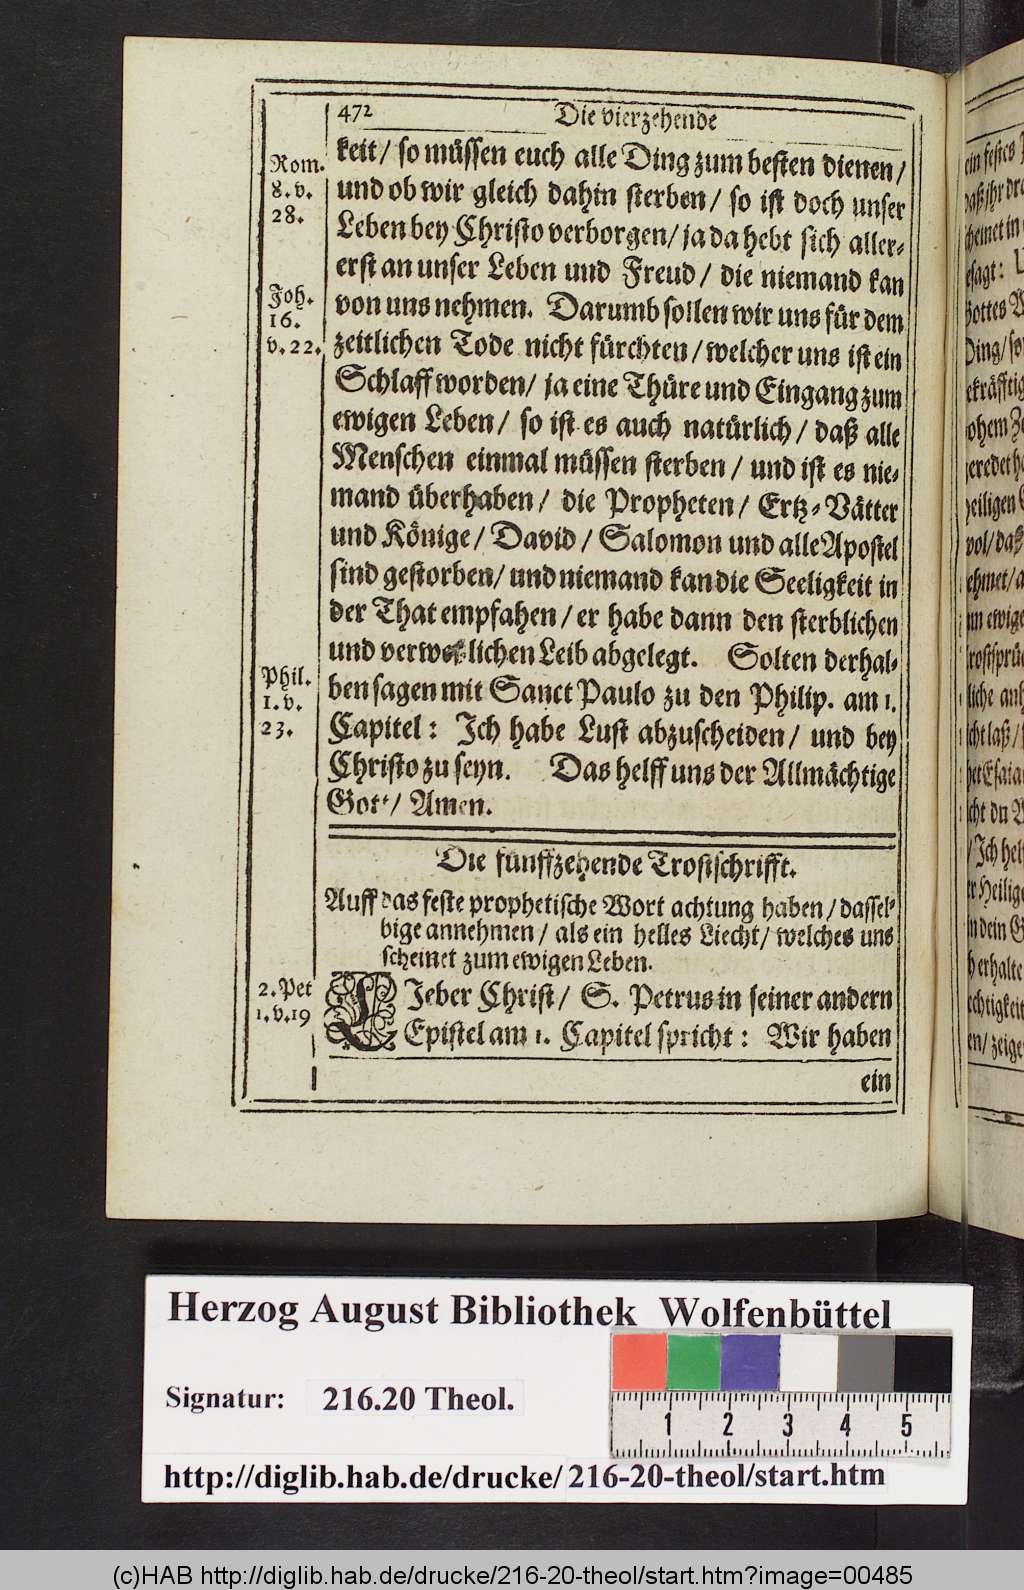 472 Die vierzehende
keit/ so müssen euch alle Ding zum besten dienen/
und ob wir gleich dahin sterben/ so ist doch unser
Leben bey Christo verborgen/ ja da hebt sich aller-
erst an unser Leben und Freud/ die niemand kan
von uns nehmen. Darumb sollen wir uns für dem
zeitlichen Tode nicht fürchten/ welcher uns ist ein
Schlaff worden/ ja eine Thüre und Eingang zum
ewigen Leben/ so ist es auch natürlich/ daß alle
Menschen einmal müssen sterben/ und ist es nie-
mand überhaben/ die Propheten/ Ertz-Vätter
und Könige/ David/ Salomon und alle Apostel
sind gestorben/ und niemand kan die Seeligkeit in
der That empfahen/ er habe dann den sterblichen
und verweslichen Leib abgelegt. Solten derhal-
ben sagen mit Sanct Paulo zu den Philip. am 1.
Capitel: Ich habe Lust abzuscheiden/ und bey
Christo zu seyn. Das helff uns der Allmächtige
Gott/ Amen.
Rom.
8. v.
28.
Joh.
16.
v. 22.
Phil.
1. v.
23.
Die fünffzehende Trostschrifft.
Auff das feste prophetische Wort achtung haben/ dassel-
bige annehmen/ als ein helles Liecht/ welches uns
scheinet zum ewigen Leben.
2. Pet
1. v. 19
LIeber Christ/ S. Petrus in seiner andern
Epistel am 1. Capitel spricht: Wir haben
ein
ein festes
daß ihr
scheinet in
esagt:
Gottes
Ding/
ekräfftig
ohem
geredet
heiligen
wol/ daß
ehmet/
nn ewige
rostsprü
liche
cht laß/
het Esaia
cht du
/ Ich hel
er Heilige
n dein
h erhalte
echtigkeit
en/ zeige
Herzog August Bibliothek Wolfenbüttel
Signatur: 216.20 Theol.
1 2 3 4 5
http://diglib.hab.de/drucke/216-20-theol/start.htm
(c)HAB http://diglib.hab.de/drucke/216-20-theol/start.htm?image=00485